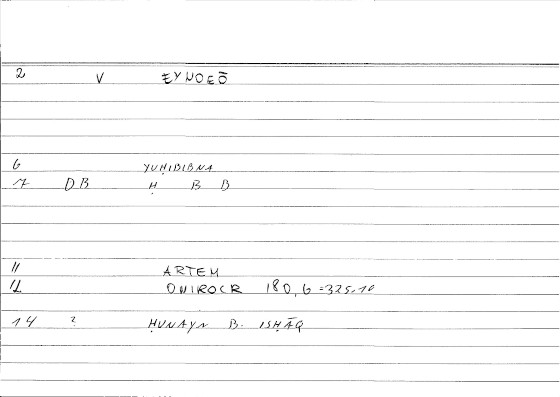 2 V ΕΥΝΟΕΩ
6 YUḤIBIBNA
7 DB Ḥ B B
11 ARTEM
12 ONIROCR 180,6 = 325.10
14 ? ḤUNAYN B. ISḤĀQ